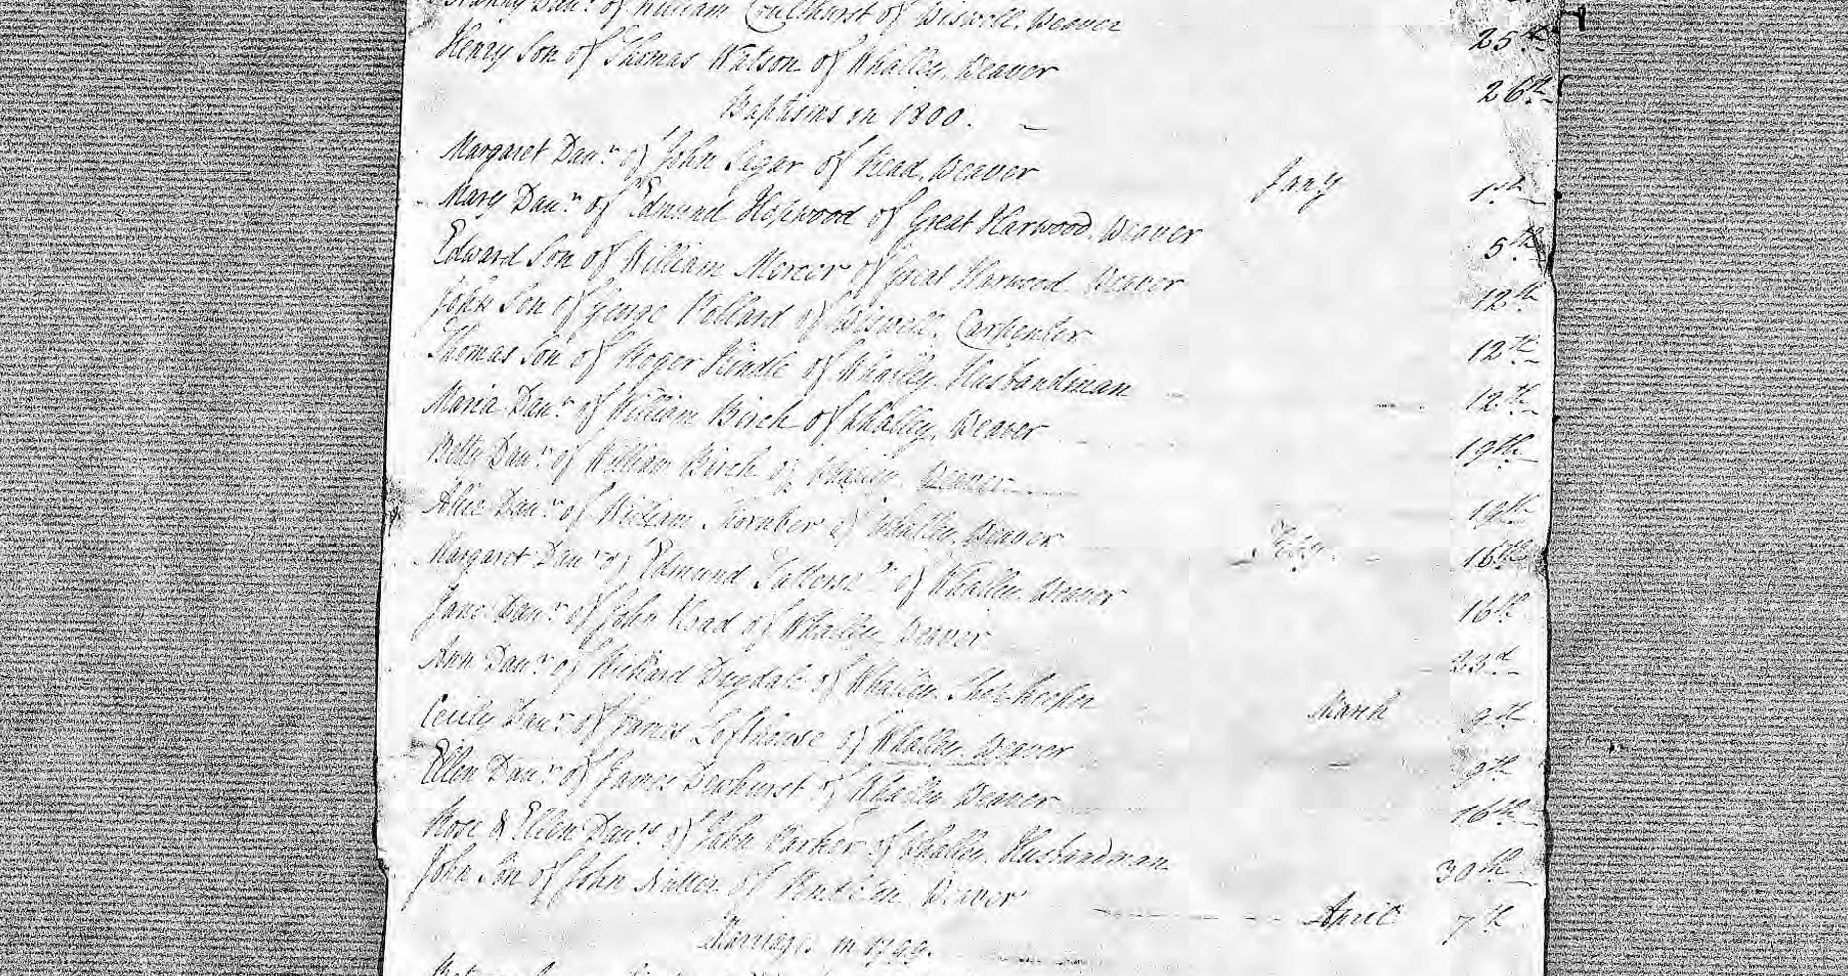 Nanny Daur. of William Coulthurst of Wiswell, Weaver 25th
Henry Son of Thomas Watson of Whalley, Weaver 26th
Baptisms in 1800.
Margaret Daur. of John Segar of Read, Weaver Jany 1st
Mary Daur. of Edmund Hepwood of Great Harwood, Weaver 5th
Edward Son of William Mercer of Great Harwood Weaver 12th
John Son of George Pollard of Wiswell, Carpenter 12th
Thomas Son of Roger Hindle of Whalley, Husbandman 12th
Maria Daur. of William Birch of Whalley, Weaver 19th
Betty Daur. of William Birch of Whalley, Weaver 19th
Alice Daur. of William Thornber of Whalley, Weaver Feby. 16th
Margaret Daur. of Edmund of Whalley, Weaver 16th
Jane Daur. of John of Whalley, Weaver 23d
Ann Daur. of Richard Dugdale of Whalley, Shopkeeper March 9th
Cecily Daur. of James Lofthouse of Whalley, Weaver 9th
Ellen Daur. of James Dewhurst of Whalley, Weaver 16th
Rose & Ellen Daurs. of John Parker of Whalley, Husbandman 30th
John Son of John of Weaver April 7th
Marriages in 1799.